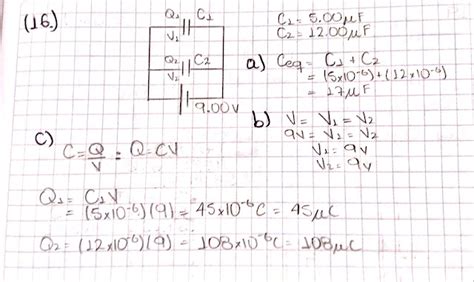 (16.)
Q₁ C₁
V₁
Q₂ C₂
V₂
9.00V
C₁ = 5.00μF
C₂ = 12.00μF
a) Ceq = C₁ + C₂
= (5x10⁻⁶)+(12x10⁻⁶)
= 17μF
b) V = V₁ = V₂
9V = V₁ = V₂
V₁ = 9V
V₂ = 9V
c) C = Q/V = Q = CV
Q₁ = C₁V
= (5x10⁻⁶)(9) = 45x10⁻⁶C = 45μC
Q₂ = (12x10⁻⁶)(9) = 108x10⁻⁶C = 108μC